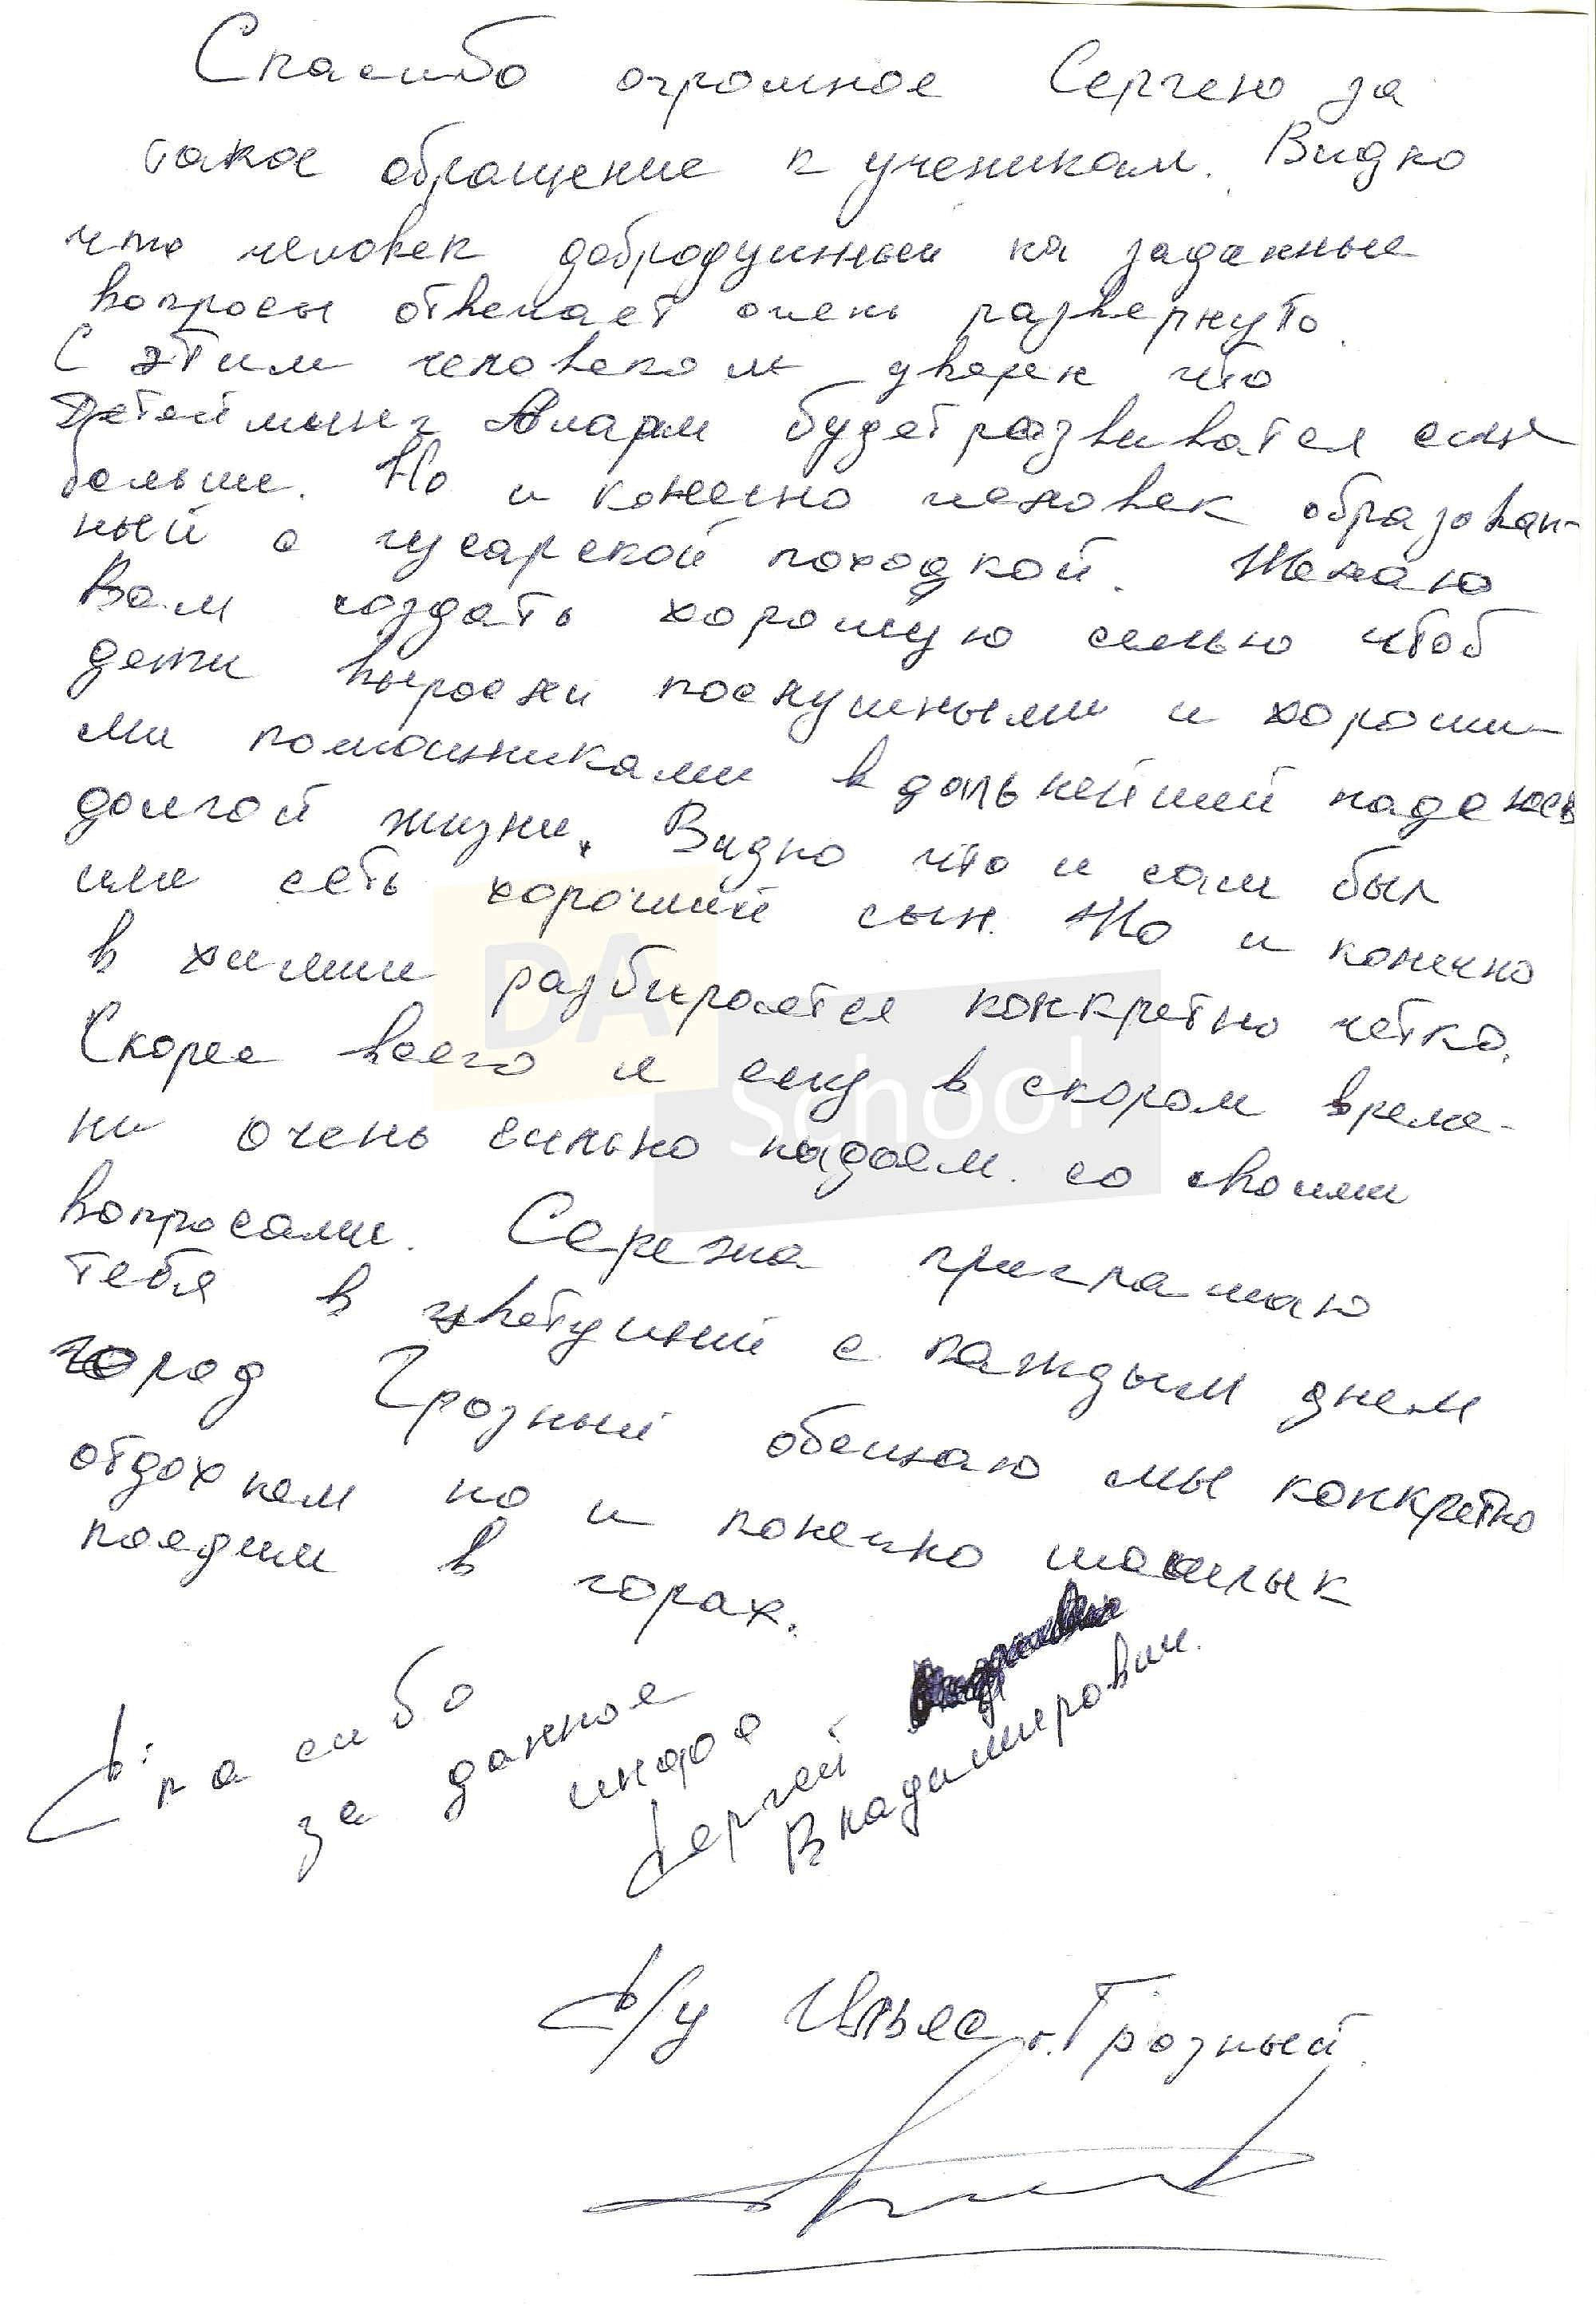 Спасибо огромное Сергею за
такое обращение к ученикам. Видно
что человек добродушный на заданные
вопросы отвечает очень развернуто.
С этим человеком уверен что
Детейлинг Аларм будет развиватся
больше. Но и конечно человек образован-
ный с гусарской походкой. Желаю
Вам создать хорошую семью чтоб
дети выросли послушными и хороши-
ми помощниками в дальнейший надеюсь
долгой жизни. Видно что и сам был
или есть хороший сын. Но и конечно
в химии разбирается конкретно четко.
Скорее всего я ему в скором време-
ни очень сильно надоем со своими
вопросами. Сережа приглашаю
тебя в цветущий с каждым днем
город Грозный обещаю мы конкретно
отдохнем но и конечно шашлык
поедим в горах.
Спасибо
за данное
инфо
Сергей
Владимирович.
С/у Ильяс г. Грозный.
DA
School